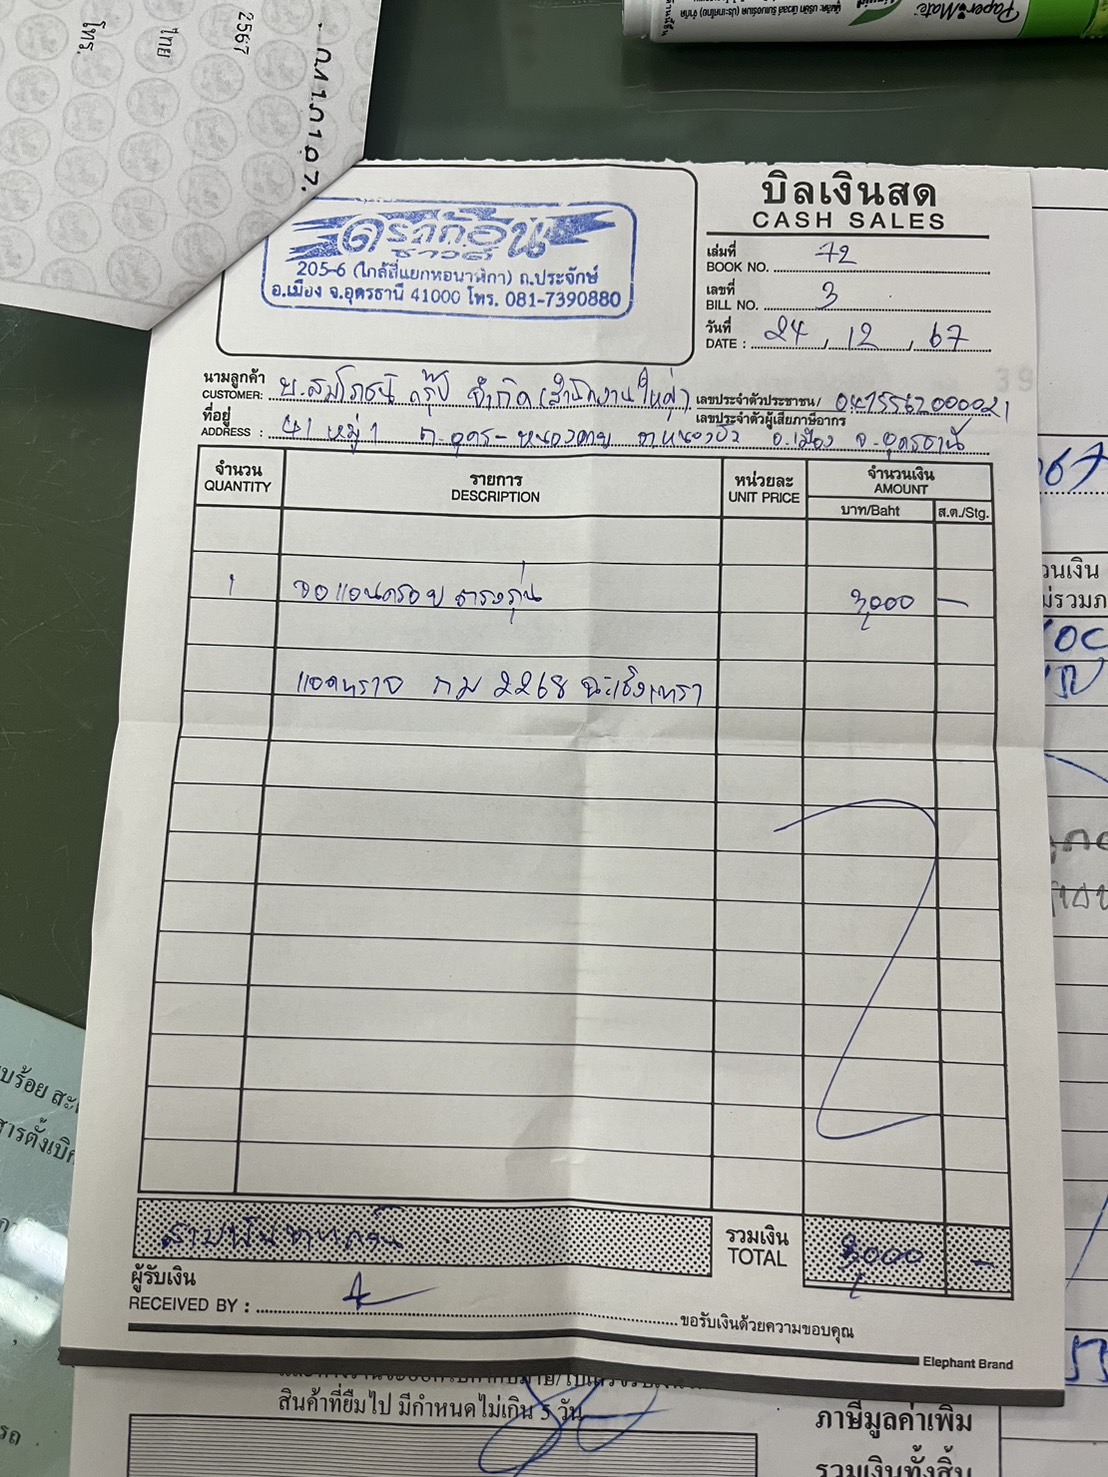 2567
ไทย
โทร.
Paper Mate
บิลเงินสด
CASH SALES
ดราก้อน
ซาวด์
205-6 (ใกล้สี่แยกหอนาฬิกา) ถ.ประจักษ์
อ.เมือง จ.อุดรธานี 41000 โทร. 081-7390880
เล่มที่
BOOK NO. 72
เลขที่
BILL NO. 3
วันที่
DATE : 24, 12, 67
นามลูกค้า
CUSTOMER: บ.สมโภชน์ กรุ๊ป จำกัด (สำนักงานใหญ่) เลขประจำตัวประชาชน/ 0415562000021
เลขประจำตัวผู้เสียภาษีอากร
ที่อยู่
ADDRESS : 41 หมู่ 1 ถ.อุดร-หนองคาย ต.หนองบัว อ.เมือง จ.อุดรธานี
จำนวน รายการ หน่วยละ จำนวนเงิน
QUANTITY DESCRIPTION UNIT PRICE AMOUNT
บาท/Baht ส.ต./Stg.
1 จอแอนดรอย ตรงรุ่น 3,000 –
แอคทราจ กม 2268 ฉะเชิงเทรา
สามพันบาทถ้วน รวมเงิน 3,000 –
TOTAL
ผู้รับเงิน
RECEIVED BY : ขอรับเงินด้วยความขอบคุณ
Elephant Brand
สินค้าที่ยืมไป มีกำหนดไม่เกิน 5 วัน
ภาษีมูลค่าเพิ่ม
รวมเงินทั้งสิ้น